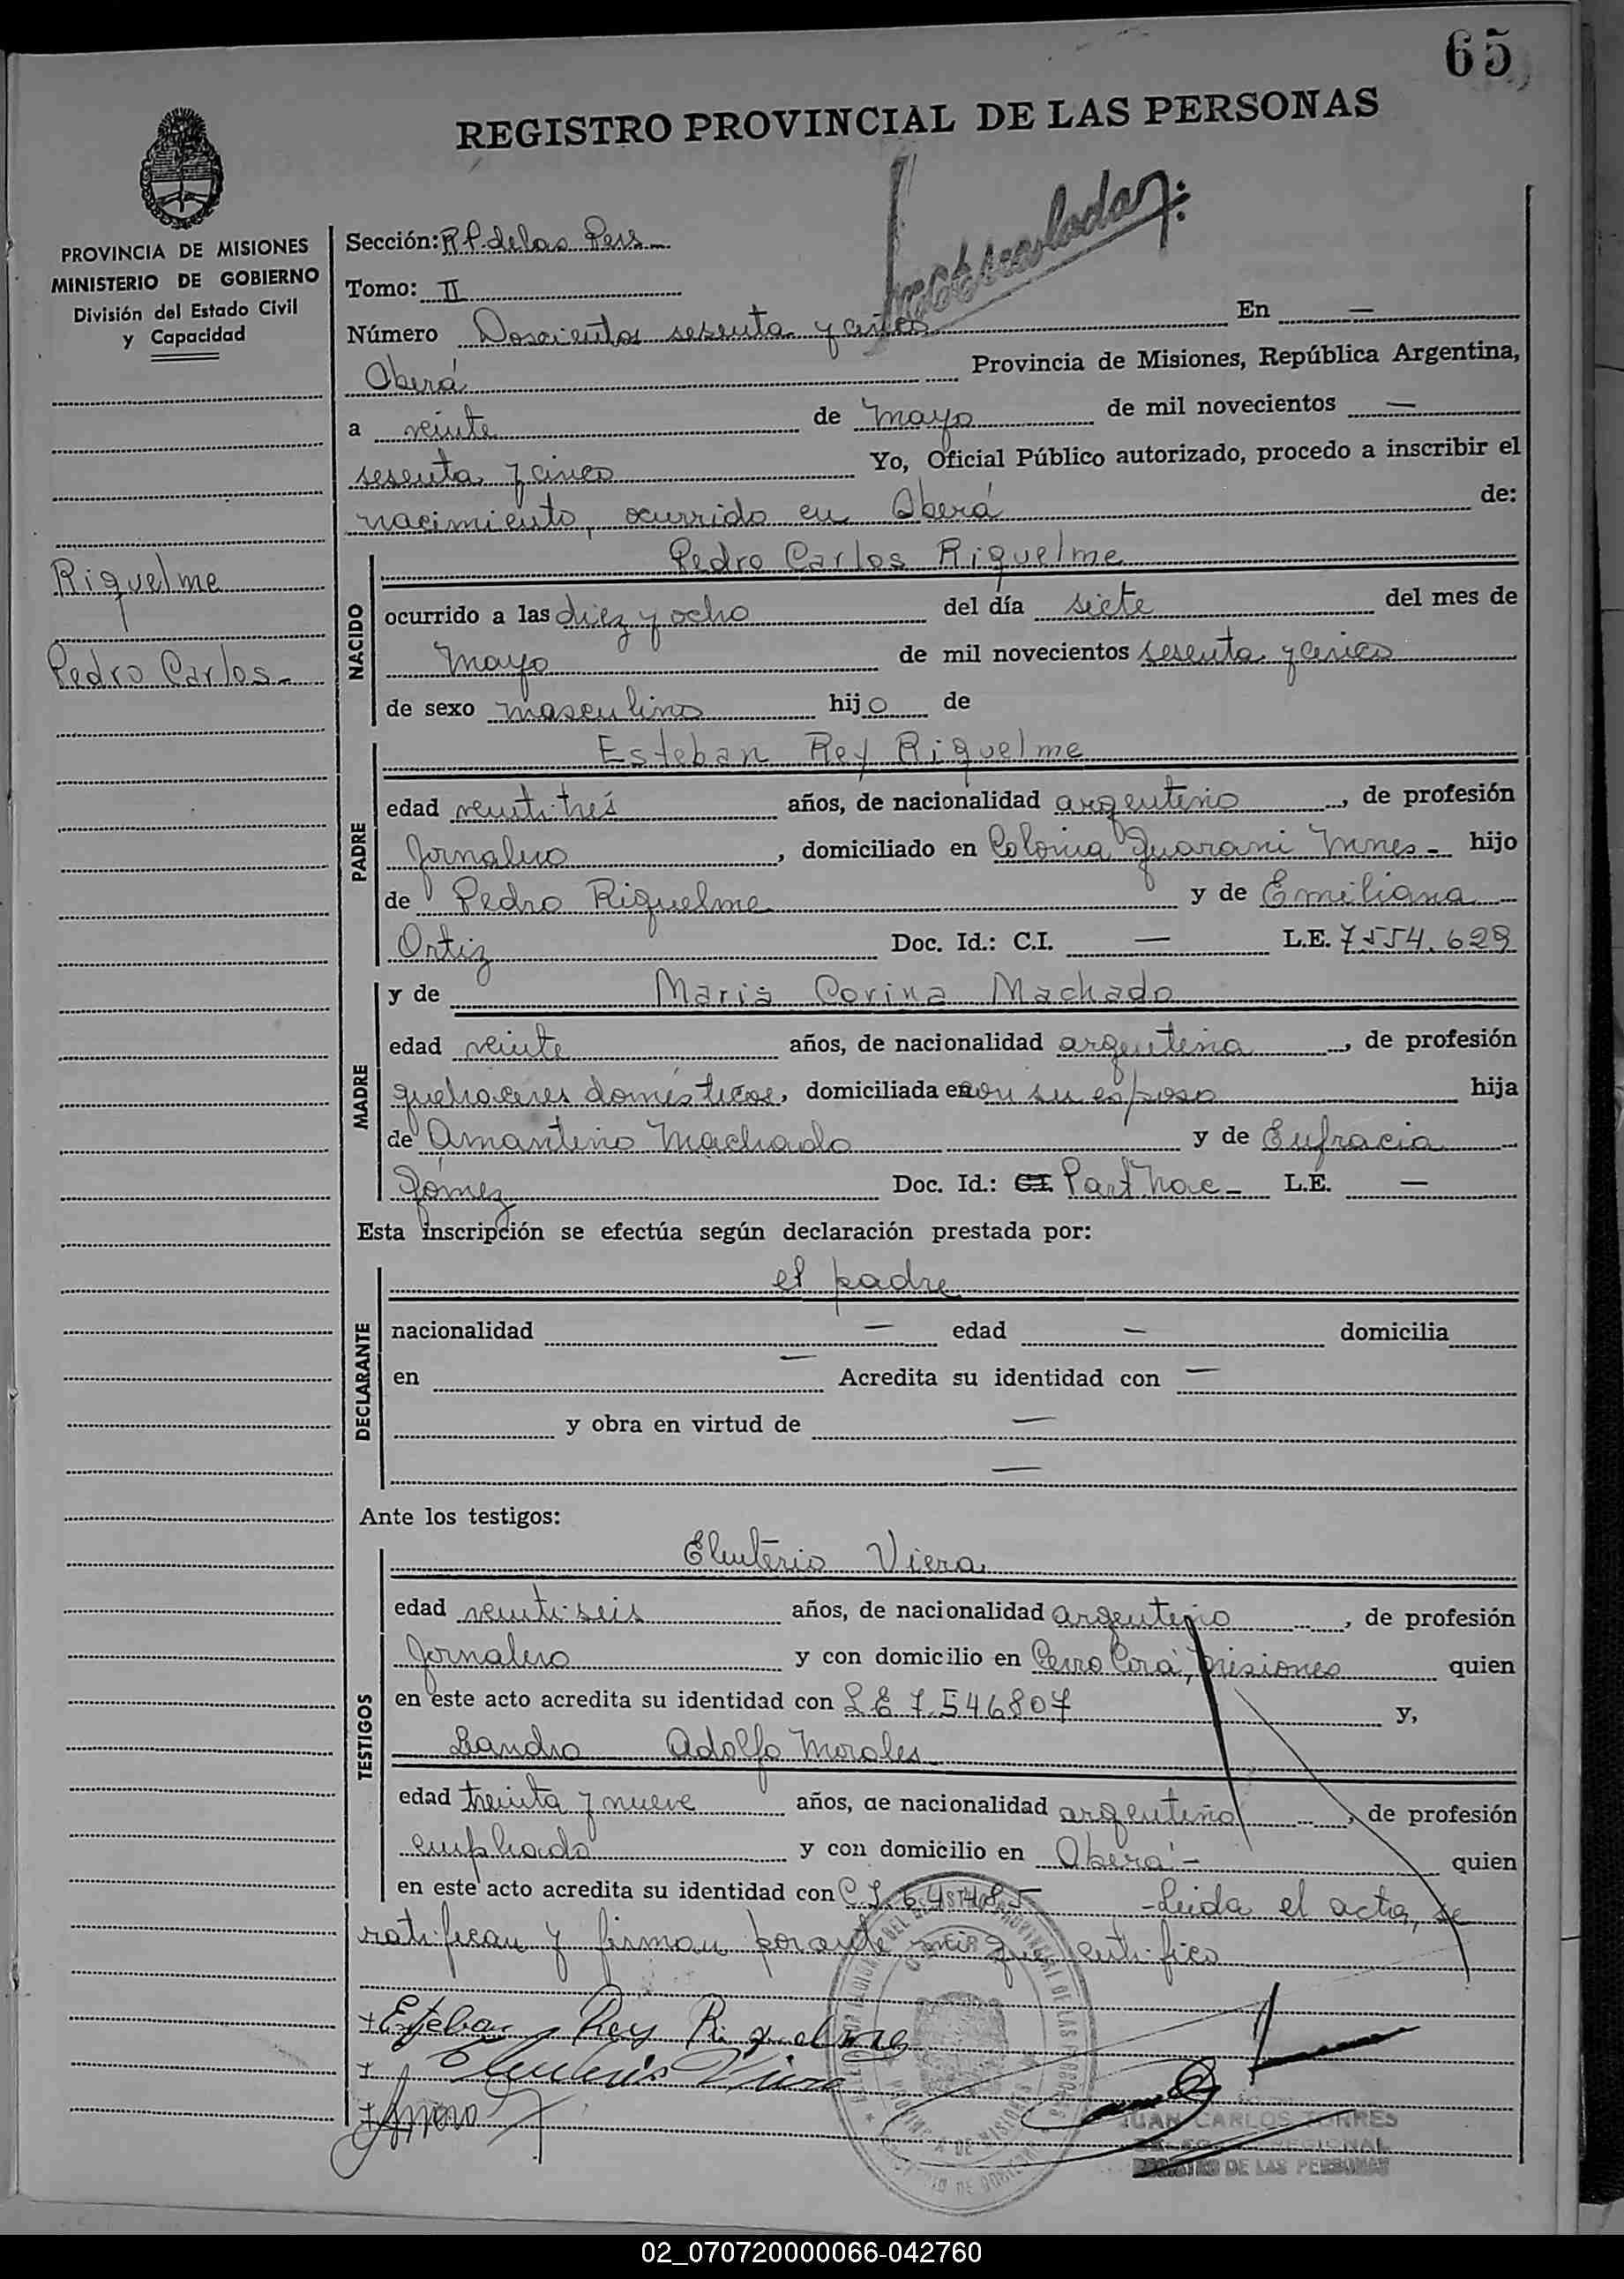 65
REGISTRO PROVINCIAL DE LAS PERSONAS
PROVINCIA DE MISIONES
MINISTERIO DE GOBIERNO
División del Estado Civil
y Capacidad
Riquelme
Pedro Carlos
Sección: R.P. de las Pers
Tomo: II
Número Doscientos sesenta y cinco En —
Oberá Provincia de Misiones, República Argentina,
a veinte de Mayo de mil novecientos —
sesenta y cinco Yo, Oficial Público autorizado, procedo a inscribir el
nacimiento, ocurrido en Oberá de:
NACIDO
Pedro Carlos Riquelme
ocurrido a las diez y ocho del día siete del mes de
Mayo de mil novecientos sesenta y cinco
de sexo masculino hijo de
PADRE
Esteban Rey Riquelme
edad veintitrés años, de nacionalidad argentino, de profesión
Jornalero, domiciliado en Colonia Guaraní Mnes- hijo
de Pedro Riquelme y de Emiliana
Ortiz Doc. Id.: C.I. — L.E. 7554.629
MADRE
y de Maria Corina Machado
edad veinte años, de nacionalidad argentina, de profesión
quehaceres domésticos, domiciliada en con su esposo hija
de Amantino Machado y de Eufracia
Gómez Doc. Id.: C.I. Part Nac- L.E. —
Esta inscripción se efectúa según declaración prestada por:
DECLARANTE
el padre
nacionalidad — edad — domicilia
en — Acredita su identidad con —
y obra en virtud de —
—
Ante los testigos:
TESTIGOS
Eleuterio Viera
edad veintiseis años, de nacionalidad argentino, de profesión
Jornalero y con domicilio en Cerro Corá, Misiones quien
en este acto acredita su identidad con L E 7.546807 y,
Leandro Adolfo Morales
edad treinta y nueve años, de nacionalidad argentino, de profesión
empleado y con domicilio en Oberá- quien
en este acto acredita su identidad con C.I. 64485 -Leida el acta, se
ratifican y firman por ante mi que certifico
Esteban Rey Riquelme
Eleuterio Viera
JUAN CARLOS TORRES
DELEGADO REGIONAL
REGISTRO DE LAS PERSONAS
02_070720000066-042760